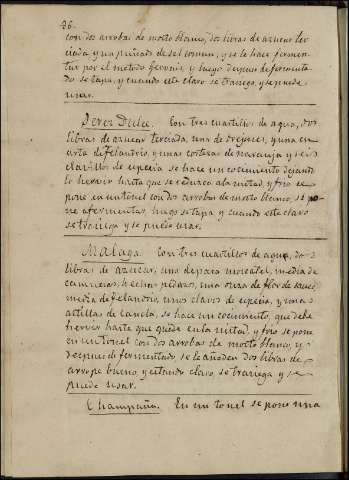 26.
con dos arrobas de mosto blanco, dos libras de azucar ter
ciada y un puñado de sal comun, y se le hace fermen-
tar por el metodo y luego despues de fermenta
do se tapa, y cuando este claro se trasiega, y se puede
usar.
Jerez Dulce. Con tres cuartillos de agua, dos
libras de azucar terciada, una de orejones, y una cu
arta de felandrio, y unas cortezas de naranja y seis
clavillos de especia se hace un cocimiento dejando
lo hervir hasta que se reduzca a la mitad, y frio se
pone en un tonel con dos arrobas de mosto blanco, se po
ne a fermentar, luego se tapa y cuando este claro
se trasiega y se puede usar.
Malaga. Con tres cuartillos de agua, dos
libras de azucar, una de pasa moscatel, media de
camuesas hechas pedazos, una onza de flor de sauco,
media de felandrio, unos clavos de especia, y unas
astillas de canela, se hace un cocimiento, que debe
hervir hasta que quede en la mitad, y frio se pone
en un tonel con dos arrobas de mosto blanco, y
despues de fermentado se le añaden dos libras de
arrope bueno, y estando claro, se trasiega y se
puede usar.
Champaña. En un tonel se pone una